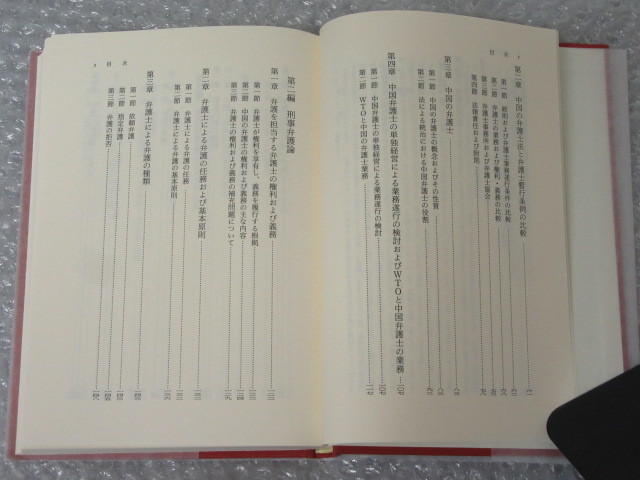 目次
第二章 中国の弁護士法と弁護士暫行条例の比較
第一節 総則および弁護士業務遂行条件の比較
第二節 弁護士の業務および権利・義務の比較
第三節 弁護士事務所および弁護士協会
第四節 法律責任および附則
第三章 中国の弁護士
第一節 中国の弁護士の概念およびその性質
第二節 法による統治における中国弁護士の役割
第四章 中国弁護士の単独経営による業務遂行の検討およびWTOと中国弁護士の業務
第一節 中国弁護士の単独経営による業務遂行の検討
第二節 WTOと中国の弁護士業務
第二編 刑事弁護論
第一章 弁護を担当する弁護士の権利および義務
第一節 弁護士が権利を享有し、義務を履行する根拠
第二節 中国の弁護士の権利および義務の主な内容
第三節 弁護士の権利および義務の補充問題について
第二章 弁護士による弁護の任務および基本原則
第一節 弁護士による弁護の任務
第二節 弁護士による弁護の基本原則
第三章 弁護士による弁護の種類
第一節 依頼弁護
第二節 指定弁護
第三節 弁護の拒否
目次